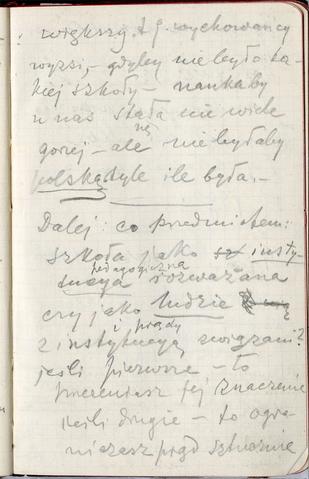 większy. t. j. wychowańcy
wyżsi, – gdyby nie było ta-
kiej szkoły – nauka by
u nas stała nie wiele
się
gorzej – ale nie byłaby
polską tyle ile była. –
Dalej: co przedmiotem:
szkoła jako insty-
pedagogiczna
tucya rozważana
czy jako ludzie
i prądy
z instytucyą związani?
jeśli pierwsze – to
przeceniasz jej znaczenie
jeśli drugie – to ogra-
niczasz prąd sztucznie